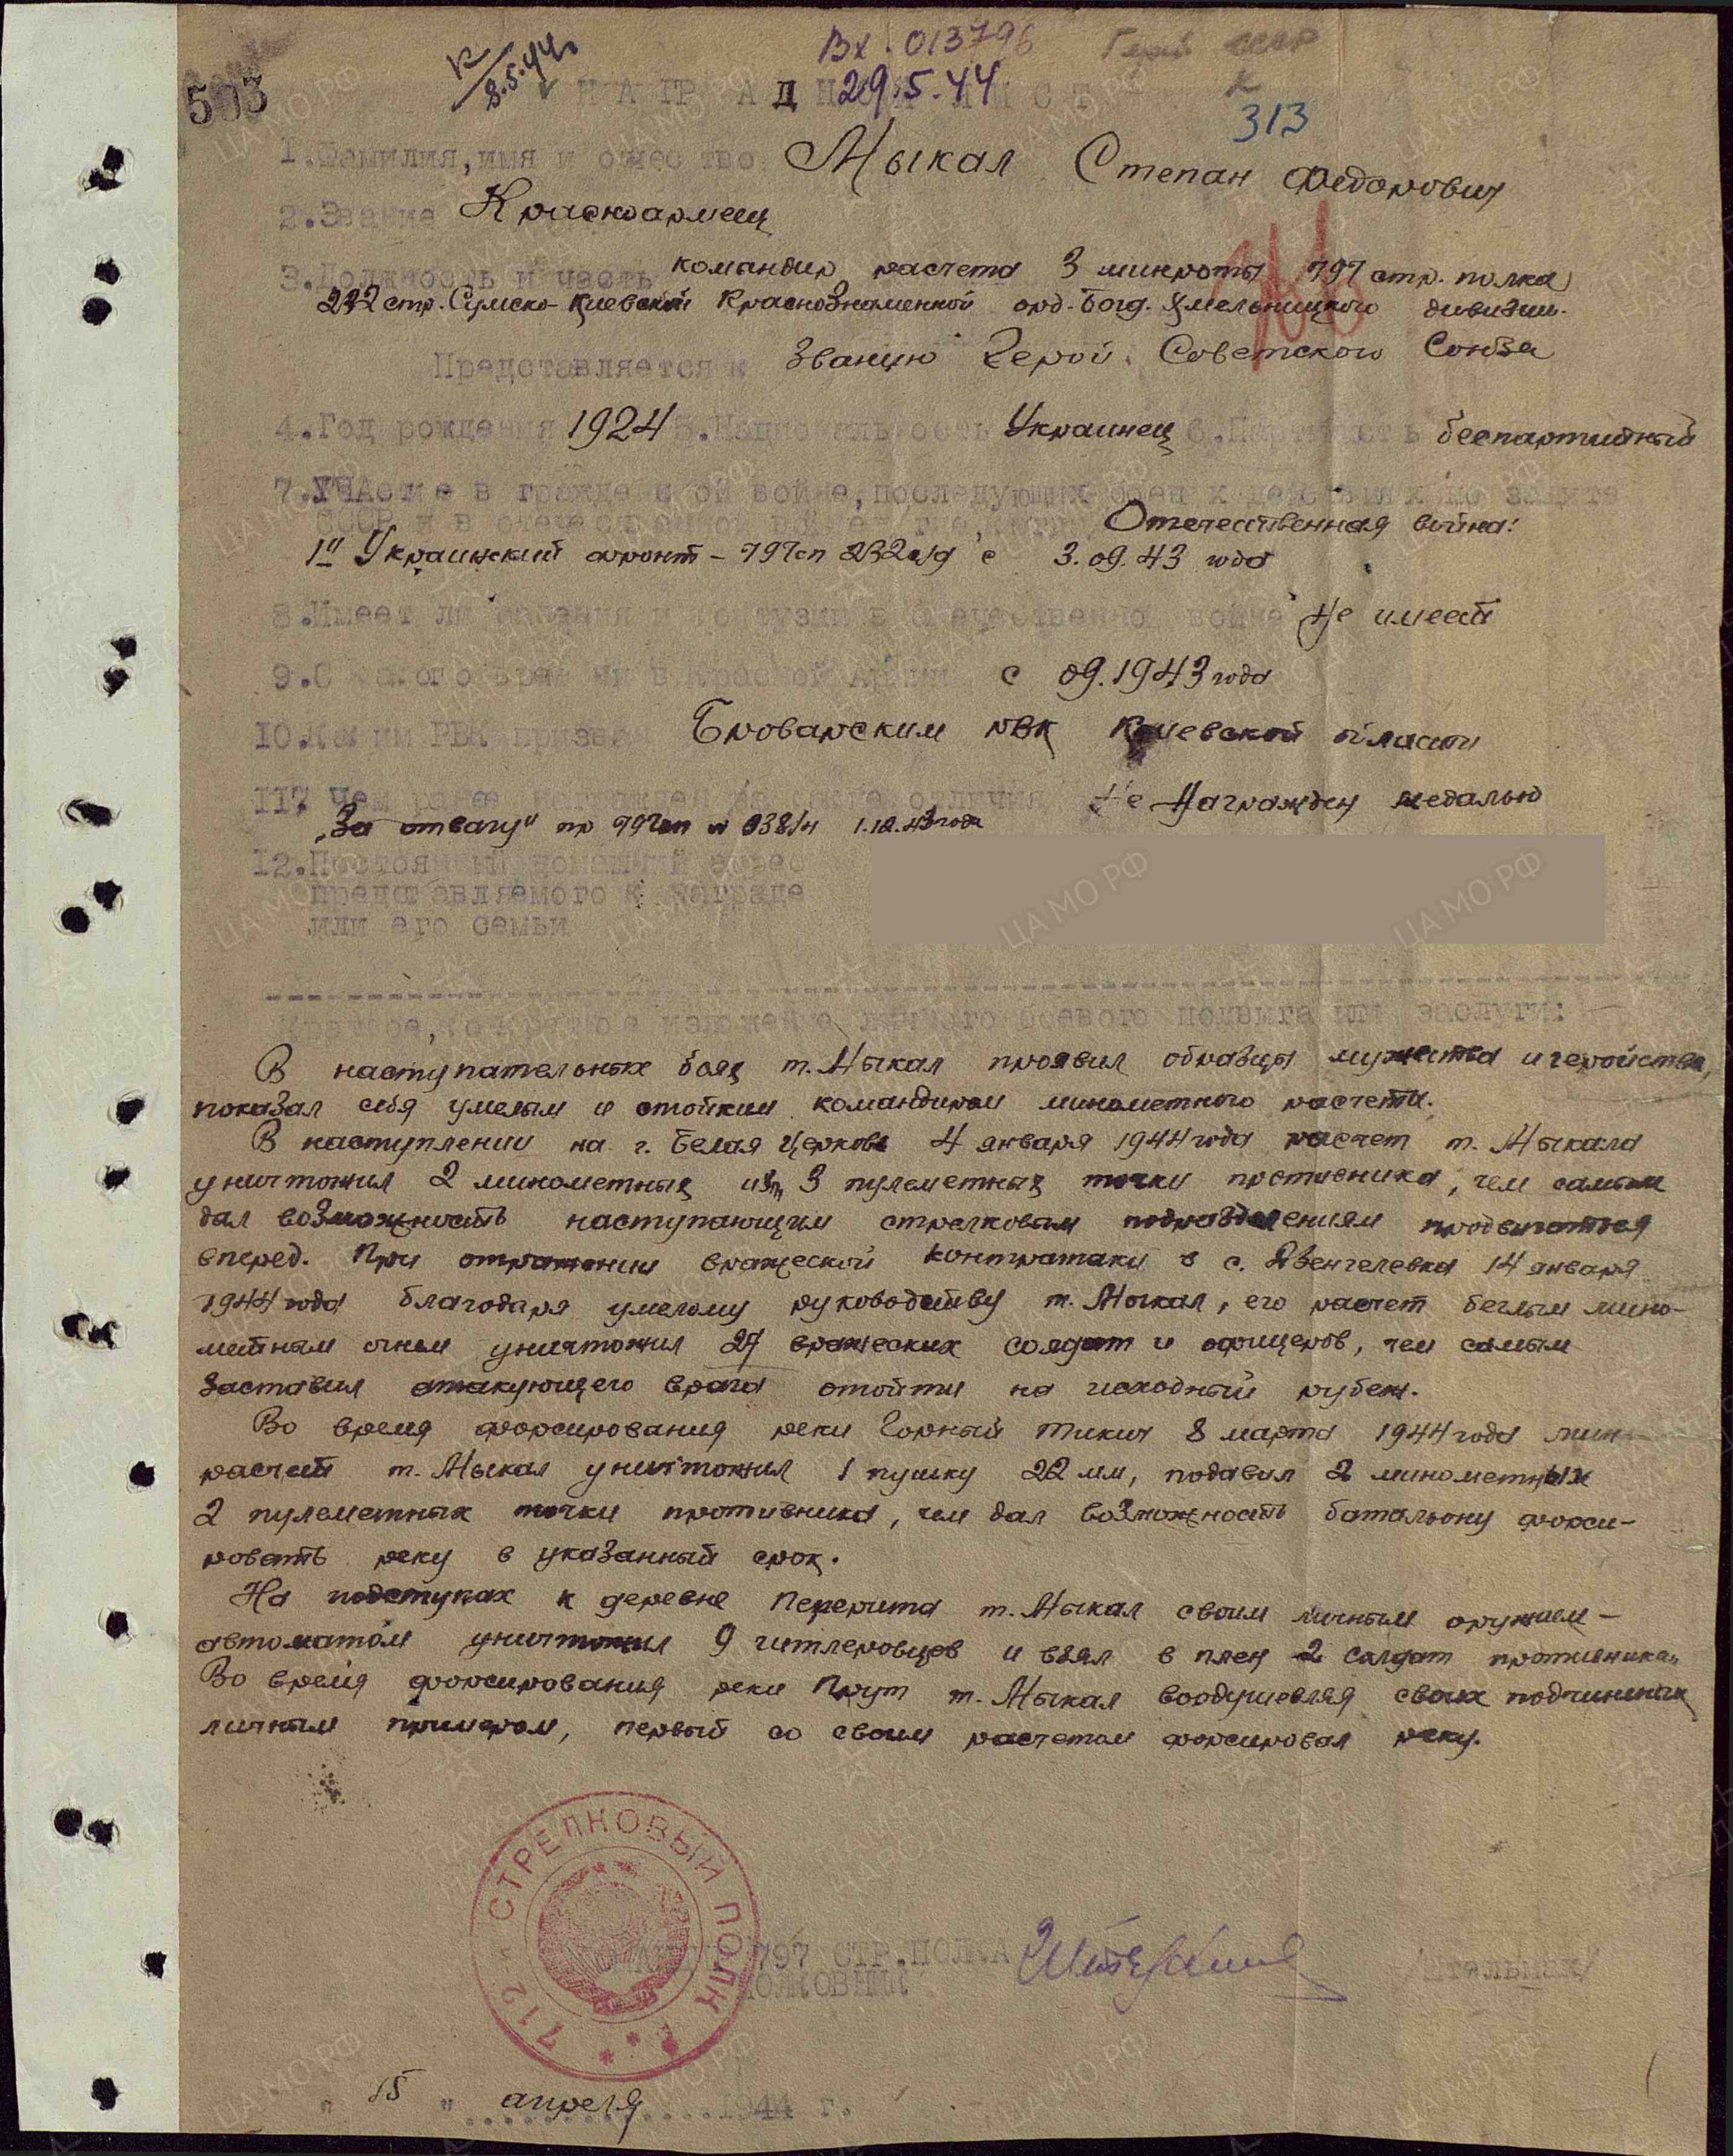 503
К 8.5.44г
Вх. 013796
Герой СССР
НАГРАДНОЙ ЛИСТ
29.5.44
313
1.Фамилия, имя и отчество Мыкал Степан Федорович
2.Звание Красноармеец
3.Должность и часть командир расчета 3 минроты 797 стр. полка
232 стр. Сумско-Киевской Краснознаменной орд. Богд. Хмельницкого дивизии.
Представляется к Званию Герой Советского Союза
4.Год рождения 1924 5.Национальность Украинец 6.Партийность беспартийный
7.Участие в гражданской войне, последующих боевых действиях по защите
СССР и в отечественной войне Отечественная война:
1й Украинский фронт – 797сп 232сд с 3.09.43 года
8.Имеет ли ранения и контузии в отечественной войне Не имеет
9.С какого времени в Красной Армии с 09.1943 года
10.Каким РВК призван Броварским РВК Киевской области
11. Чем ранее награжден Не Награжден медалью
„За отвагу" пр 797сп № 038/н 1.12.43 года
12.Постоянный домашний адрес
представляемого к награде
или его семьи
Краткое, конкретное изложение личного боевого подвига или заслуги:
В наступательных боях т. Мыкал проявил образцы мужества и геройства,
показал себя умелым и стойким командиром минометного расчета.
В наступлении на г. Белая Церковь 4 января 1944 года расчет т. Мыкала
уничтожил 2 минометных и 3 пулеметных точки противника, чем самым
дал возможность наступающим стрелковым подразделениям продвигаться
вперед. При отражении вражеской контратаки в с. Звенгелевка 14 января
1944 года благодаря умелому руководству т. Мыкал, его расчет беглым мино-
метным огнем уничтожил 27 вражеских солдат и офицеров, чем самым
заставил атакующего врага отойти на исходный рубеж.
Во время форсирования реки Горный Тикич 8 марта 1944 года мин
расчет т. Мыкал уничтожил 1 пушку 22 мм, подавил 2 минометных
2 пулеметных точки противника, чем дал возможность батальону форси-
ровать реку в указанный срок.
На подступах к деревне Перерита т. Мыкал своим личным оружием –
автоматом уничтожил 9 гитлеровцев и взял в плен 2 солдат противника.
Во время форсирования реки Прут т. Мыкал воодушевляя своих подчиненых
личным примером, первый со своим расчетом форсировал реку.
712 СТРЕЛКОВЫЙ ПОЛК
797 СТР.ПОЛКА
ПОЛКОВНИК
" 15 " апреля 1944 г.